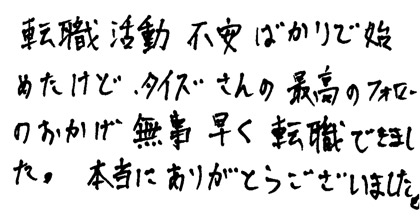 転職活動 不安ばかりで始
めたけど、タイズさんの最高のフォロー
のおかげ無事早く転職できまし
た。本当にありがとうございました。